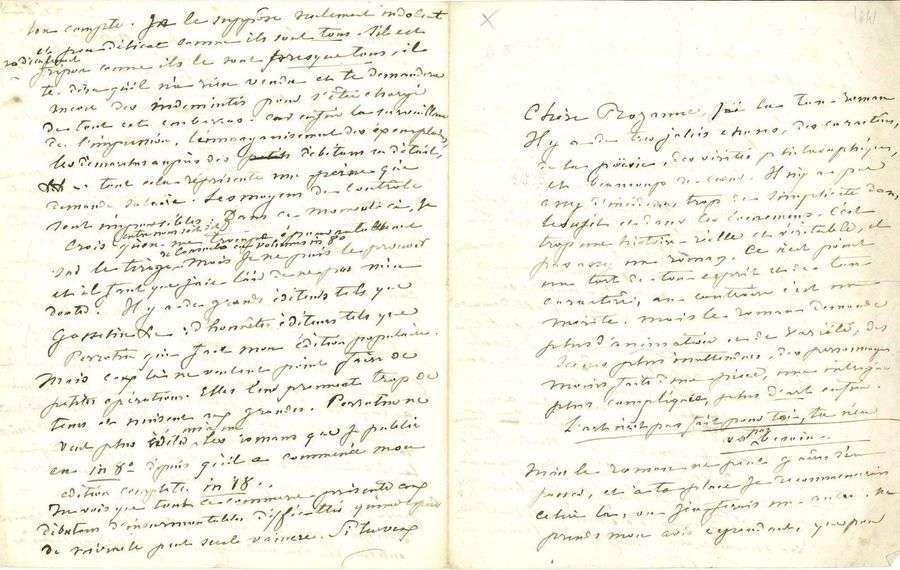 ton compte. Je le suppose seulement indolent
et peu délicat comme ils sont tous. S'il est
fripon comme ils le sont presque tous, il
te dira qu'il n'a rien vendu et te demandera
encore des indemnités pour s'être chargé
de tout cet embarras. Car enfin la surveillance
de l'impression, l'emmagasinement des exemplaires,
les démarches auprès des petits débitans en détail,
tout cela représente une peine qui
demande salaire. Les moyens de contrôle
sont impossibles. Dans ce moment ci, je
crois qu'on me
sur le tirage de Consuelo en 8°
mais je ne puis le prouver
et il faut que j'aie l'air de ne pas m'en
douter. Il y a de grands éditeurs tels que
Gosselin & d'honnêtes éditeurs tels que
Perrotin qui fait mon édition populaire.
Mais ceux là ne veulent point faire de
petites opérations. Elles leur prennent trop de
tems et nuisent aux grandes. Perrotin ne
veut plus même éditer les romans que je publie
en in 8° depuis qu'il a commencé mon
édition complète in 18.
Tu vois que tout ce commerce présente aux
débutans d'insurmontables difficultés qu'une espèce
de miracle peut seule vaincre. Si tu veux
Chère Rozanne, j'ai lu ton roman
Il y a de très jolies choses, des caractères,
de la poësie, des vérités philosophiques,
et beaucoup de cœur. Il n'y a pas
assez d'incidens, trop de simplicité dans
le sujet et dans les évènemens. C'est
trop une histoire réelle et véritable, et
pas assez un roman. Ce n'est point
un tort de ton esprit et de ton
caractère, au contraire c'est un
mérite. mais le roman demande
plus d'animation et de variété, des
scènes plus inattendues, des personnages
moins faits d'une pièce, une intrigue
plus compliquée, plus d'art enfin.
L'art n'est pas fait pour toi, tu n'en
as pas besoin.
Mais le roman ne peut guères s'en
passer, et à ta place je recommencerais
celui là, ou j'en ferais un autre. Ne
prends mon avis cependant, que pour